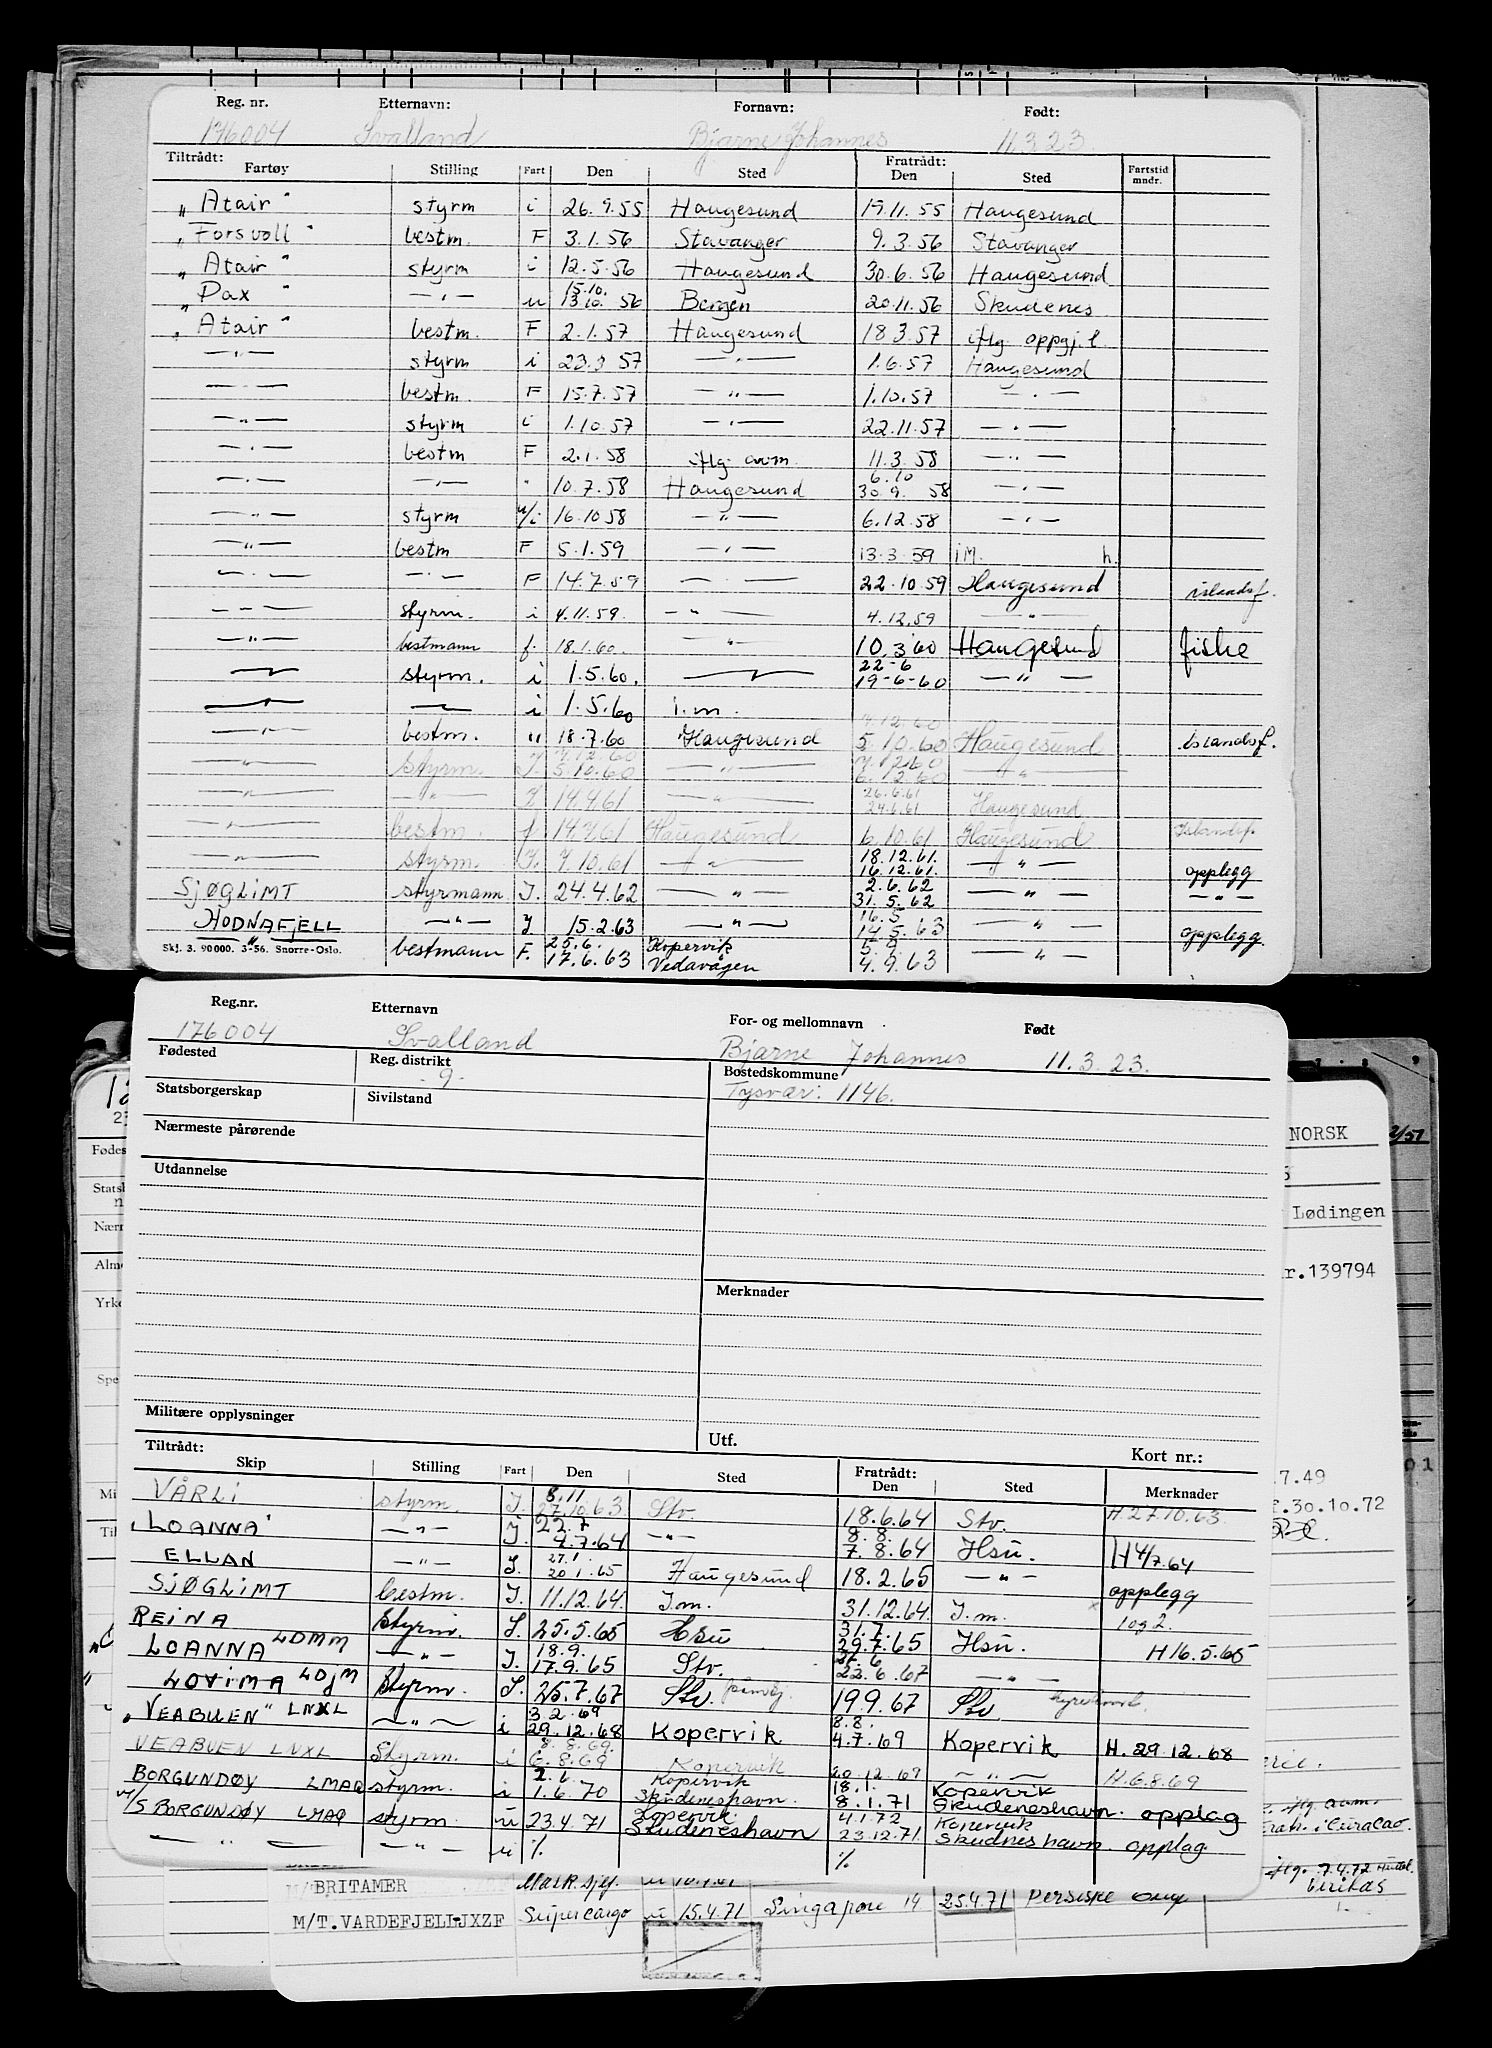 Reg. nr. Etternavn: Fornavn: Født:
176004 Svalland Bjarne Johannes 11.3.23.
Tiltrådt: Fratrådt:
Fartøy Stilling Fart Den Sted Den Sted Fartstid mndr.
"Atair" styrm i 26.9.55 Haugesund 19.11.55 Haugesund
"Forsvoll" bestm. F 3.1.56 Stavanger 9.3.56 Stavanger
"Atair" styrm i 12.5.56 Haugesund 30.6.56 Haugesund
15.10.
"Dax" — " — u 13.10.56 Bergen 20.11.56 Skudenes
"Atair" bestm. F 2.1.57 Haugesund 18.3.57 iflg. oppgj.l.
— " — styrm i 23.3.57 — " — 1.6.57 Haugesund
— " — bestm. F 15.7.57 — " — 1.10.57 — " —
— " — styrm i 1.10.57 — " — 22.11.57 — " —
— " — bestm F 2.1.58 iflg. avm. 11.3.58 — " —
6.10
— " — — " — " 10.7.58 Haugesund 30.9. 58 — " —
— " — styrm u/i 16.10.58 — " — 6.12.58 — " —
— " — bestm F 5.1.59 — " — 13.3.59 i M. h.
— " — — " — F 14.7.59 — " — 22.10.59 Haugesund islandsf.
— " — styrm. i 4.11.59. — " — 4.12.59 — " —
— " — bestmann f. 18.1.60. — " — 10.3.60 Haugesund fiske
22-6
— " — styrm. i 1.5.60. — " — 19-6-60 — " —
— " — — " — i 1.5.60 i.m.
7.12.60
— " — bestm. " 18.7.60 Haugesund 5.10.60 Haugesund islandsf.
7.12.60 7.12.60
— " — styrm. I. 5.10.60 — " — 6.12.60 — " —
26.6.61
— " — — " — I 14.4.61 — " — 24.6.61 Haugesund
— " — bestm. f 14.7.61 Haugesund 6.10.61 Haugesund Islandsf.
18.12.61.
— " — styrm. I. 7.10.61 — " — 16.12.61. — " — opplegg
2.6.62
SJØGLIMT styrmann I. 24.4.62 — " — 31.5.62 — " — — " —
16.5
HODNAFJELL — " — I 15.2.63 — " — 14.5.63 — " — opplegg.
25.6. Kopervik 5.9.
" bestmann F. 17.6.63 Vedavågen 4.9.63 — " —
Skj. 3. 90000. 3-56. Snorre-Oslo.
Reg.nr. Etternavn For- og mellomnavn Født
176004 Svalland Bjarne Johannes 11.3.23.
Fødested Reg. distrikt Bostedskommune
9. Tysvær: 1146.
Statsborgerskap Sivilstand
Nærmeste pårørende
Utdannelse
Merknader
Militære opplysninger Utf. Kort nr.:
Tiltrådt: Fratrådt:
Skip Stilling Fart Den Sted Den Sted Merknader
8.11
VÅRLI styrm. I. 27.10.63 Stv. 18.6.64 Stv. H.27.10.63.
22.7 8.8.
"LOANNA" — " — I. 4.7.64 — " — 7.8.64 Hsu. H4/7.64
27.1
ELLAN — " — I. 20.1.65 Haugesund 18.2.65 — " — opplegg
SJØGLIMT bestm. I. 11.12.64. I.m. 31.12.64. I.m. 1 og 2.
31.7.
REINA styrm. I. 25.5.65 Hsu 29.7.65 Hsu. H16.5.65
18.9. 27.6
LOANNA LDMM — " — I. 17.9.65 Stv. 22.6.67 — " —
LOVIMA LDJM styrm. I. 25.7.67 Stv. 19.9.67 Stv
3.2.69 8.8.
"VEABUEN" LNXL — " — i 29.12.68 Kopervik 4.7.69 Kopervik H.29.12.68
8.8.69.
VEABUEN LNXL Styrm. i 6.8.69 Kopervik 20.12.69 — " — H.6.8.69
2.6. Kopervik 18.1. Kopervik
BORGUNDØY LMAQ styrm. i 1.6.70 Skudeneshavn. 8.1.71 Skudeneshavn. opplag
Kopervik. 4.1.72 Kopervik
M/S BORGUNDØY LMAQ styrm. u 23.4.71 Skudeneshavn 23.12.71. Skudneshavn. opplag
— " — — " — u % %
NORSK 2/57
Lødingen
r.139794
7.49
30.10.72
Fødes
Stats
Nærr
Alm
Yrke
Spe
Mi
Til
iflg. avm.
i Curacao.
iflg. 7.4.72
Veritas
M/T BRITAMER Mask.sjef.
M/T. VARDEFJELL-JXZF Supercargo u 15.4.71 Singapore 14 25.4.71 Persiske